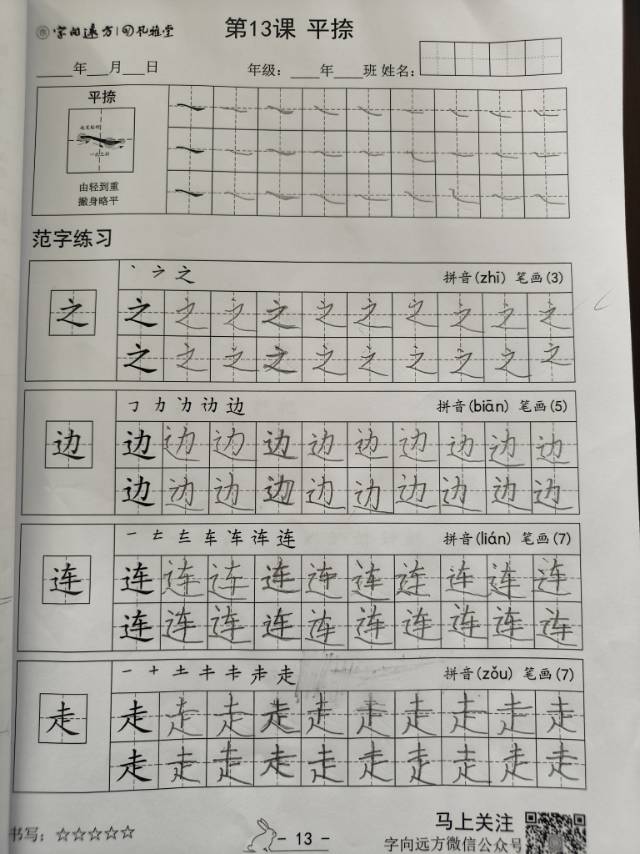 字向远方 | 礼雅堂 第13课 平捺
____年___月___日 年级：____年____班 姓名：
平捺
由轻到重
撇身略平
范字练习
丶 之 拼音(zhī) 笔画(3)
之 之 之 之 之 之 之 之 之 之 之
之 之 之 之 之 之 之 之 之 之
边 拼音(biān) 笔画(5)
边 边 边 边 边 边 边 边 边 边 边
边 边 边 边 边 边 边 边 边 边
一 车 连 拼音(lián) 笔画(7)
连 连 连 连 连 连 连 连 连 连 连
连 连 连 连 连 连 连 连 连 连
一 十 土 走 拼音(zǒu) 笔画(7)
走 走 走 走 走 走 走 走 走 走 走
走 走 走 走 走 走 走 走 走 走
书写：☆☆☆☆☆ - 13 - 马上关注
字向远方微信公众号